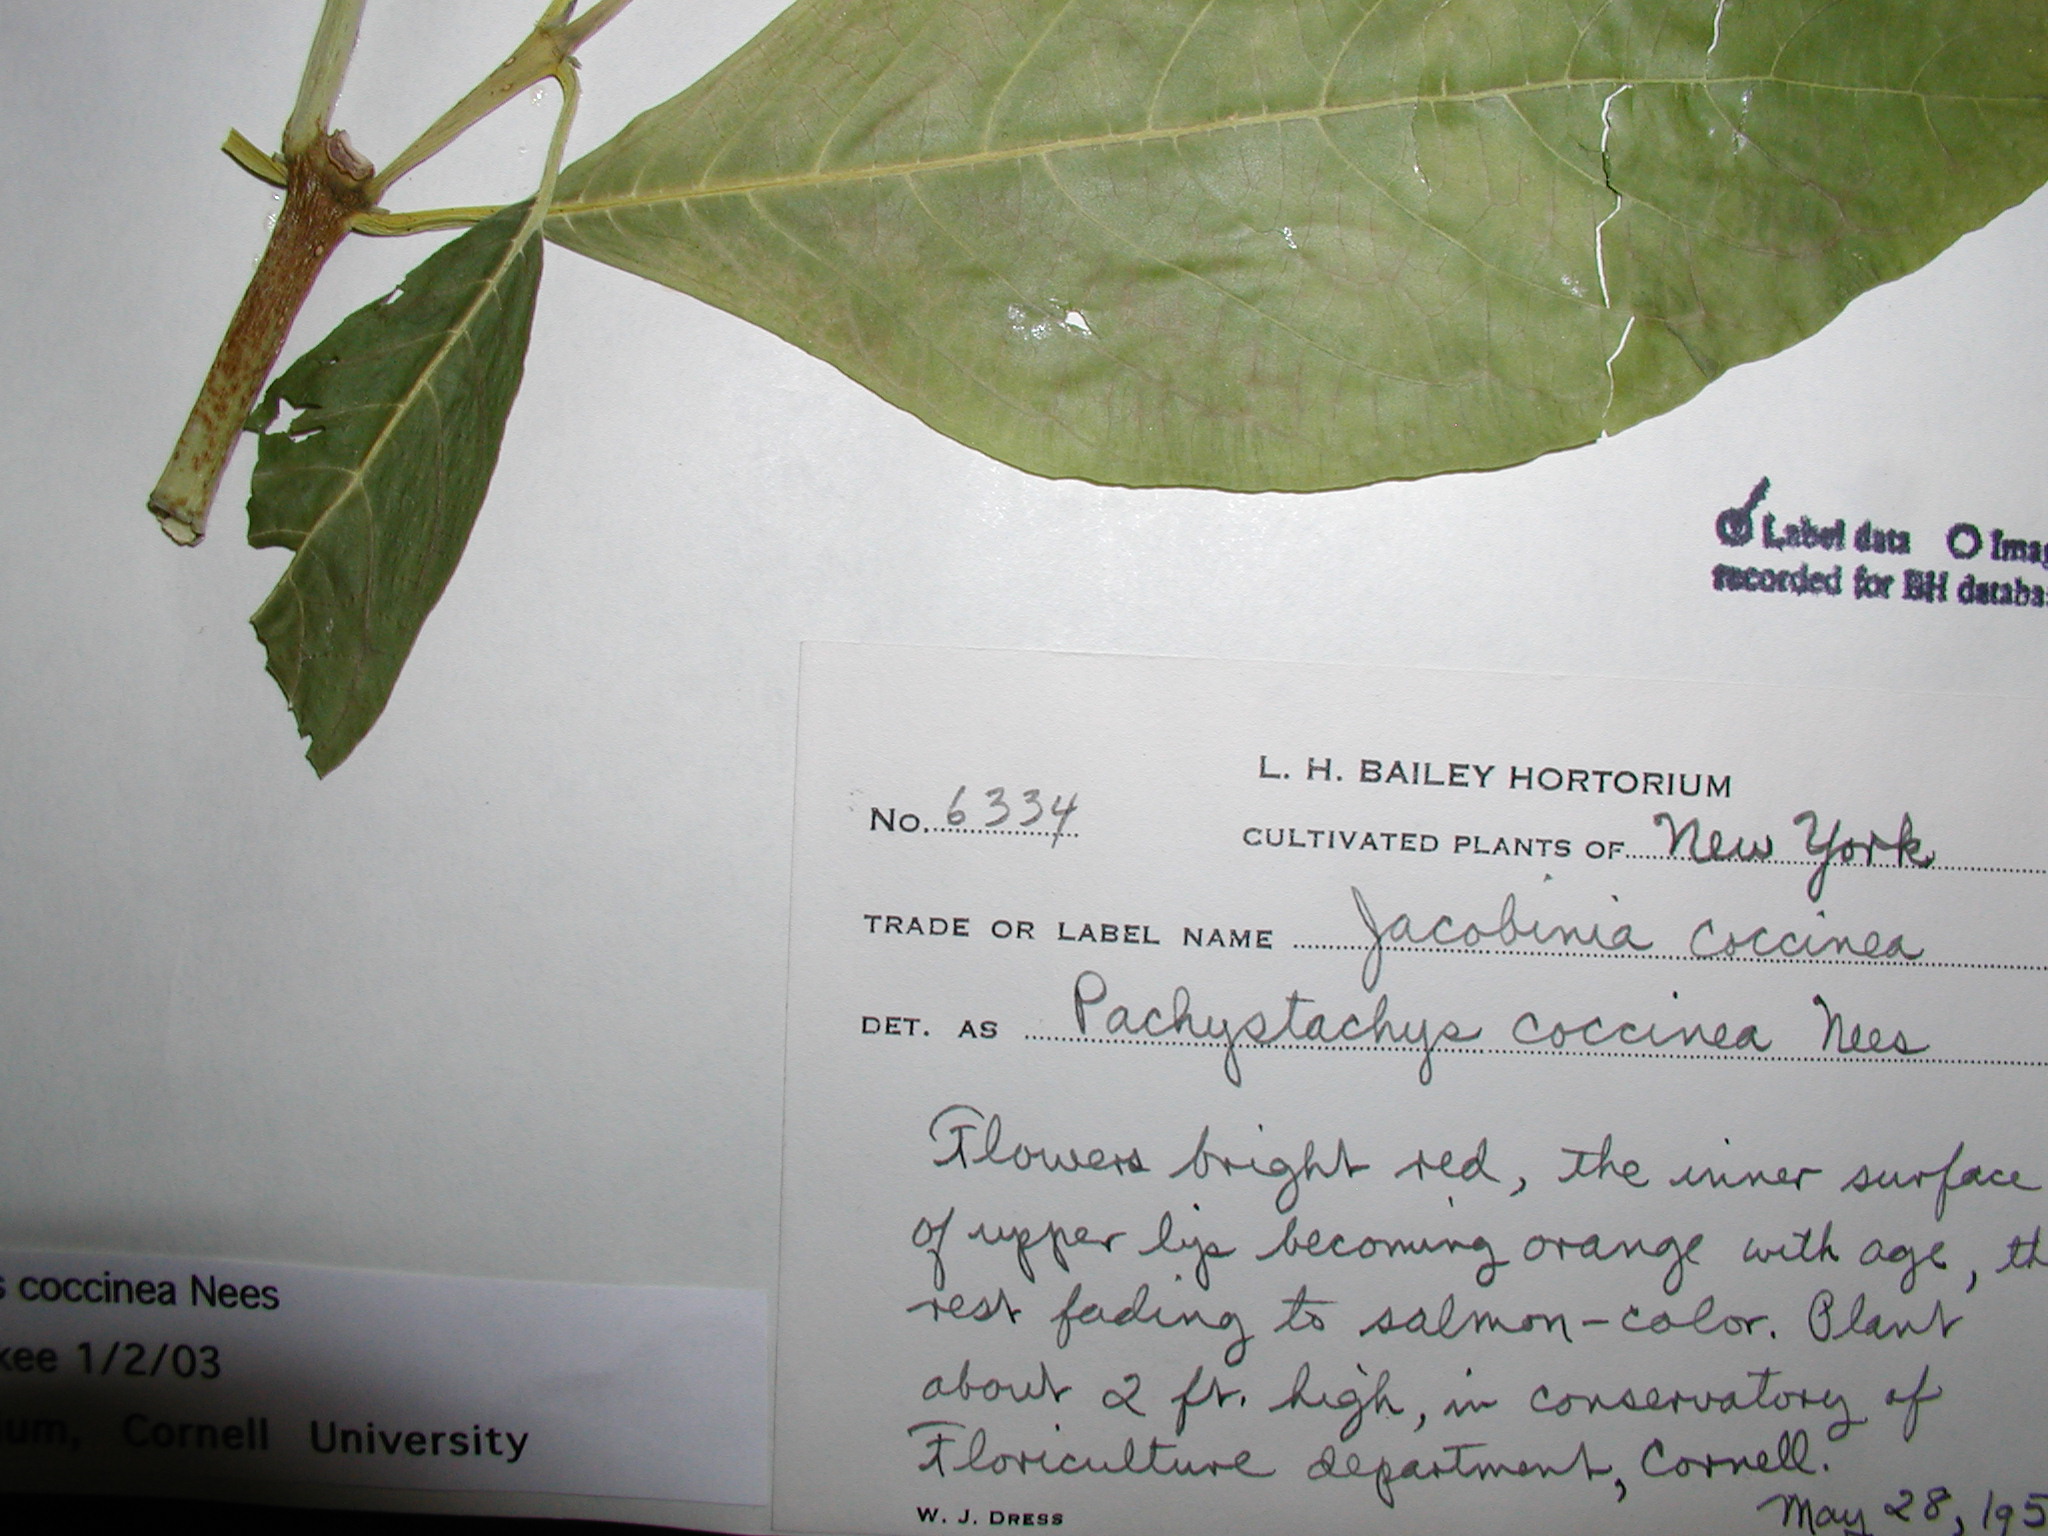 Label data
recorded for BH
L. H. BAILEY HORTORIUM
No. 6334
CULTIVATED PLANTS OF New York
TRADE OR LABEL NAME Jacobinia coccinea
DET. AS Pachystachys coccinea Nees
Flowers bright red, the inner surface
of upper lip becoming orange with age,
rest fading to salmon-color. Plant
about 2 ft. high, in conservatory of
Floriculture department, Cornell.
W. J. DRESS
May 28,
coccinea Nees
1/2/03
Cornell University